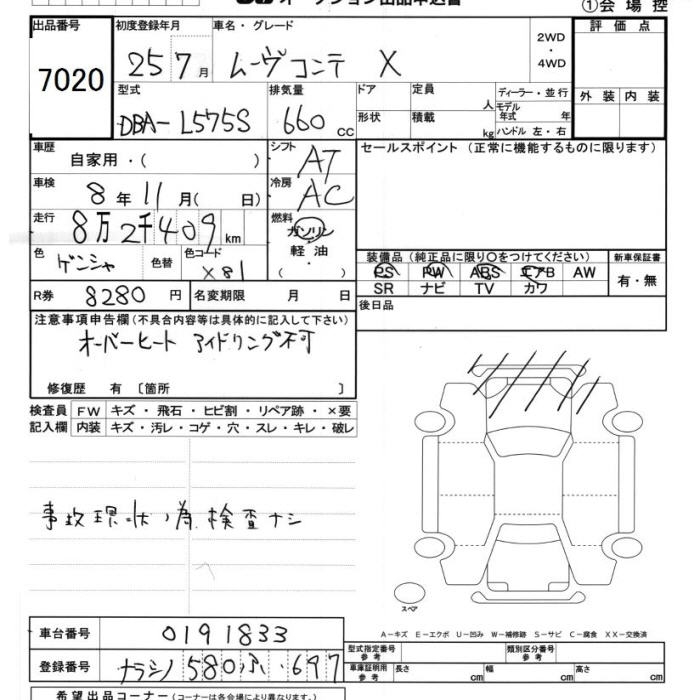 オークション出品申込書 ①会場控
出品番号 初度登録年月 車名・グレード 2WD・4WD 評価点
7020 25 7月 ムーヴコンテ X
型式 排気量 ドア 定員 人 ディーラー・並行 外装 内装
DBA-L575S 660 cc 形状 積載 kg モデル年式 年 ハンドル 左・右
車歴 自家用・( ) シフト AT セールスポイント (正常に機能するものに限ります)
車検 8年11月( 日) 冷房 AC
走行 8万2千409km 燃料 ガソリン
軽油・( )
色 ゲンシャ 色替 色コード X81
装備品(純正品に限り○をつけてください) 新車保証書
PS PW ABS エアB AW 有・無
SR ナビ TV カワ
R券 8280円 名変期限 月 日 後日品
注意事項申告欄(不具合内容等は具体的に記入して下さい)
オーバーヒート アイドリング不可
修復歴 有 〔箇所 〕
検査員 FW キズ・飛石・ヒビ割・リペア跡・×要
記入欄 内装 キズ・汚レ・コゲ・穴・スレ・キレ・破レ
事故現状ノ為検査ナシ
スペア
A-キズ E-エクボ U-凹み W-補修跡 S-サビ C-腐食 XX-交換済
車台番号 0191833
型式指定番号 参考 類別区分番号 参考
登録番号 ナラシノ 580 ふ・697
車庫証明用 参考 長さ cm 幅 cm 高さ cm
希望出品コーナー(コーナーは各会場により異なります。)